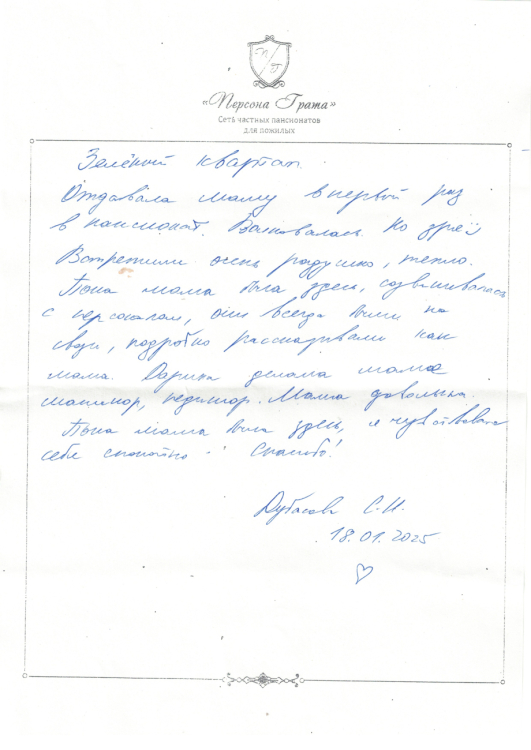 П/Г
«Персона Грата»
Сеть частных пансионатов
для пожилых
Зелёный квартал.
Отдавала маму впервой раз
в пансионат. Волновалась. Но зря!
Встретили очень радушно, тепло.
Пока мама была здесь, созванивалась
с персоналом, они всегда были на
связи, подробно рассказывали как
мама. Дарина делала маме
маникюр, педикюр. Мама довольна.
Пока мама была здесь, я чувствовала
себе спокойно. Спасибо!
Дубасова С.И.
18.01.2025